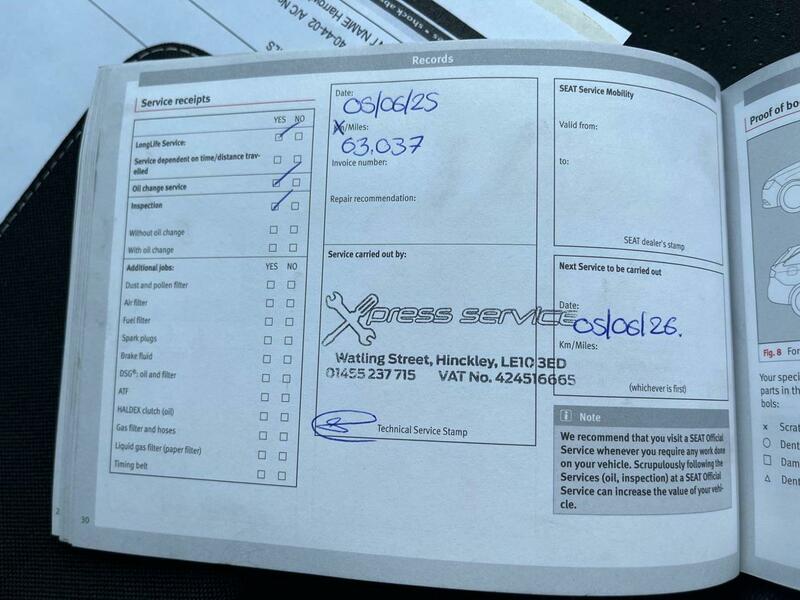 es • shock ab
NT NAME Harrow
40-44-02 A/C N
Records
Service receipts
YES NO
LongLife Service:
Service dependent on time/distance trav-
elled
Oil change service
Inspection
Without oil change
With oil change
Additional jobs: YES NO
Dust and pollen filter
Air filter
Fuel filter
Spark plugs
Brake fluid
DSG®: oil and filter
ATF
HALDEX clutch (oil)
Gas filter and hoses
Liquid gas filter (paper filter)
Timing belt
30
Date:
05/06/25
Km/Miles:
63.037
Invoice number:
Repair recommendation:
Service carried out by:
Xpress service
Watling Street, Hinckley, LE10 3ED
01455 237 715 VAT No. 424516665
Technical Service Stamp
SEAT Service Mobility
Valid from:
to:
SEAT dealer's stamp
Next Service to be carried out
Date:
05/06/26.
Km/Miles:
(whichever is first)
Note
We recommend that you visit a SEAT Official
Service whenever you require any work done
on your vehicle. Scrupulously following the
Services (oil, inspection) at a SEAT Official
Service can increase the value of your vehi-
cle.
Proof of bo
Fig. 8 For
Your speci
parts in th
bols:
x Scrat
Dent
Dam
Dent